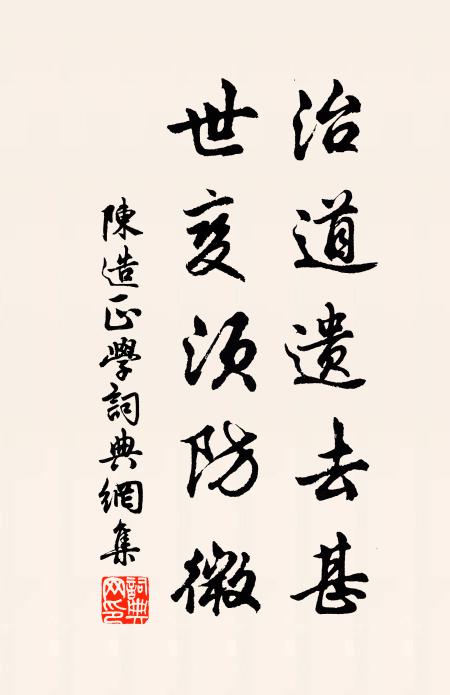 治道遗去甚
世变须防微
陳造正學詞典網集
詞典网印